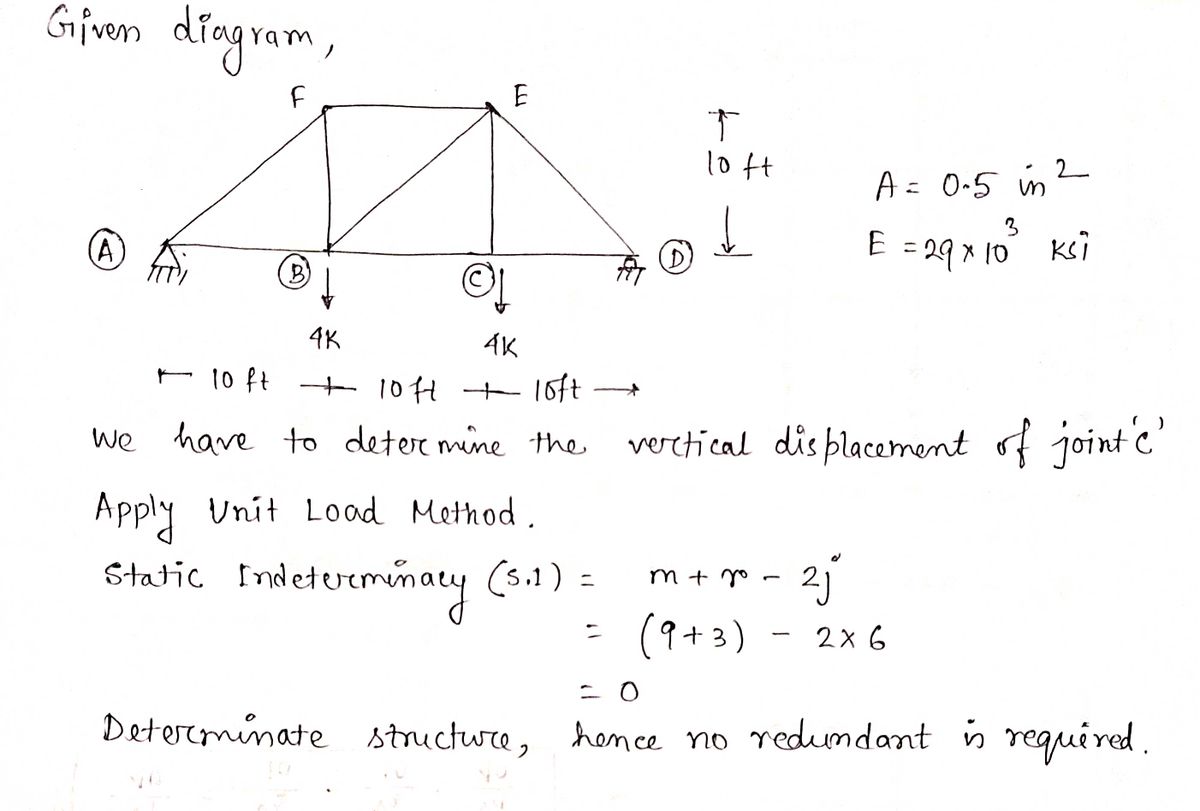 Given diagram,
F
E
10 ft
A = 0.5 in²
E = 29 × 10³ ksi
A
B
C
D
4K
4K
10 ft
10 ft
10ft
We have to determine the vertical displacement of joint 'c'
Apply Unit Load Method.
Static Indeterminacy (S.I) = m + r - 2j
= (9+3) - 2×6
= 0
Determinate structure, hence no redundant is required.